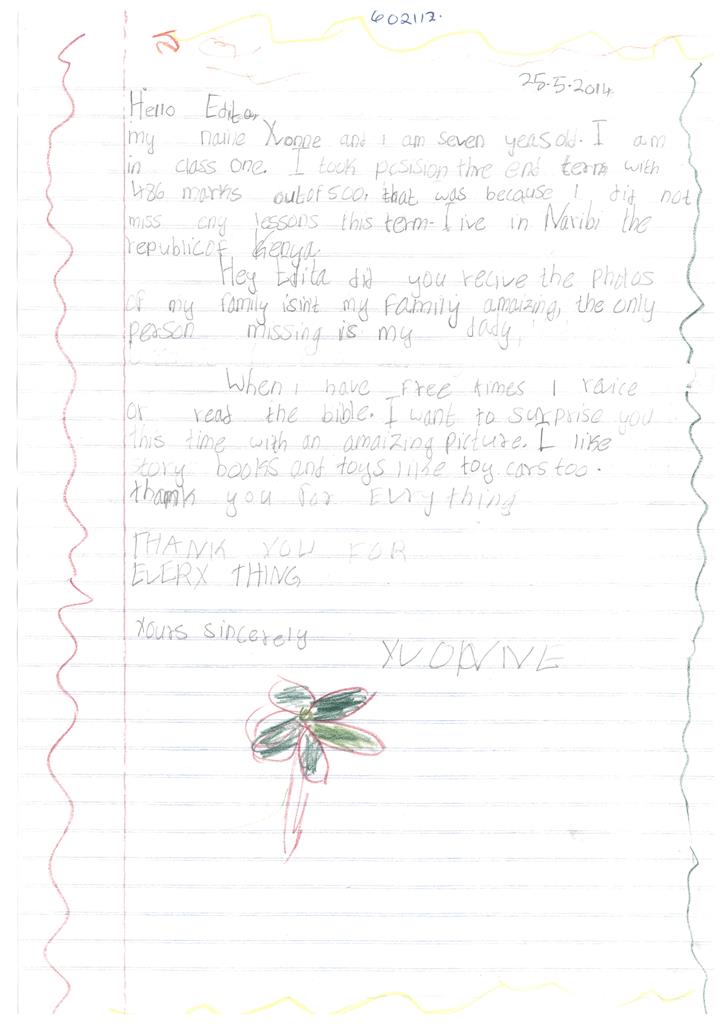 602112.
25.5.2014
Hello Edita,
my name Yvonne and i am seven yeas old. I am
in class one. I took posision thre end term with
486 marks out of 500, that was because i did not
miss any lessons this term-I ive in Naribi the
republic of Kenya
Hey Edita did you recive the photos
of my family isint my Family amaizing, the only
person missing is my dady,
When i have free times I revice
or read the bible. I want to surprise you
this time with an amaizing picture. I like
story books and toys like toy cars too.
thank you for Evry thing
THANK YOU FOR
EVERY THING
Yours sincerely
YVONNE